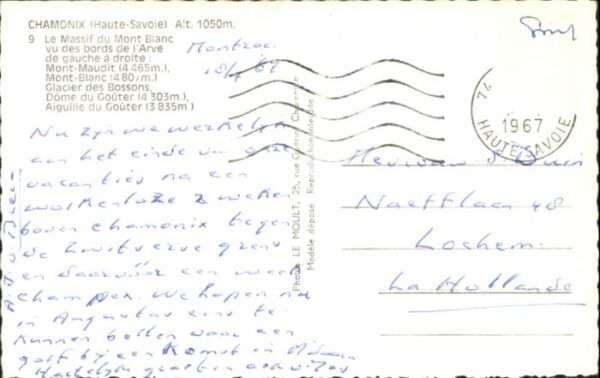 CHAMONIX (Haute-Savoie) Alt. 1050m.
9 Le Massif du Mont Blanc
vu des bords de l'Arve
de gauche à droite :
Mont-Maudit (4 465m.),
Mont-Blanc (4 807m.)
Glacier des Bossons,
Dôme du Goûter (4 303m.),
Aiguille du Goûter (3 835m)
Montroc
Nu zijn we werkelijk
aan het einde van onze
vacantie na een
wolkenloze 2 weken
boven Chamonix tegen
de Zwitserse grens
en daarvoor een week
We hopen nu
in Augustus eens te
kunnen bellen voor een
golf bij een komst in
Hartelijk groeten
Photo LE MOULT, 25, rue
Modèle déposé Reproduction interdite
74
1967
HAUTE SAVOIE
Mevrouw d
Naefflaan 48
Lochem.
La Hollande